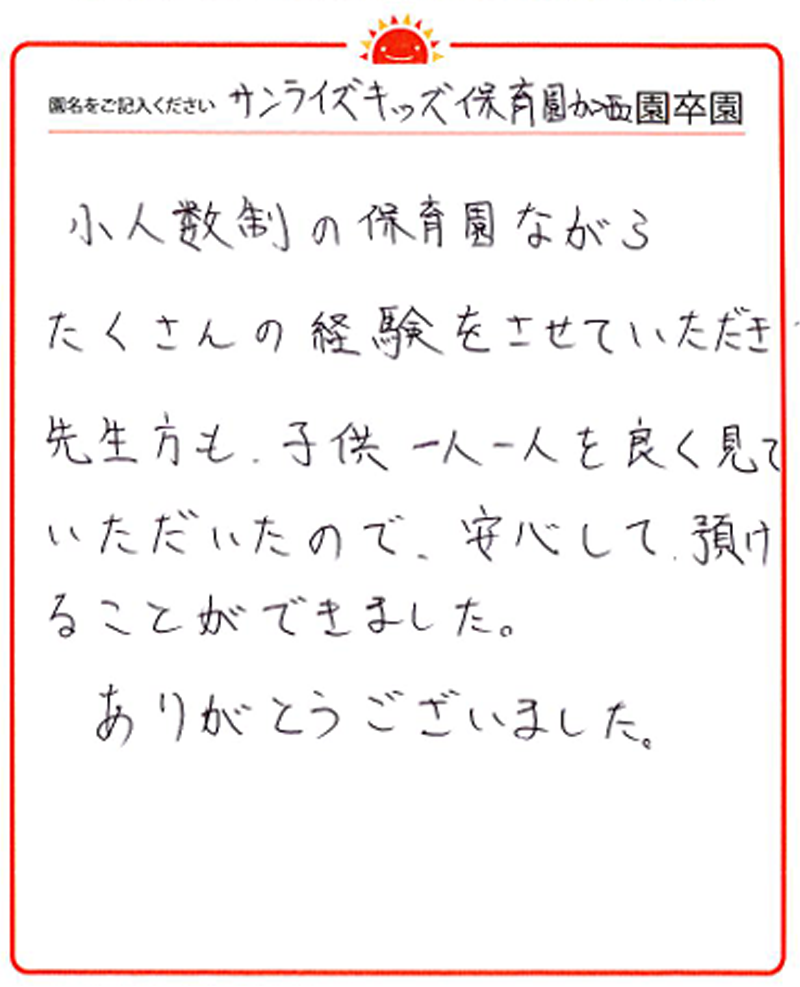 園名をご記入ください サンライズキッズ保育園加西園卒園
小人数制の保育園ながら
たくさんの経験をさせていただき、
先生方も、子供一人一人を良く見て
いただいたので、安心して、預け
ることができました。
ありがとうございました。